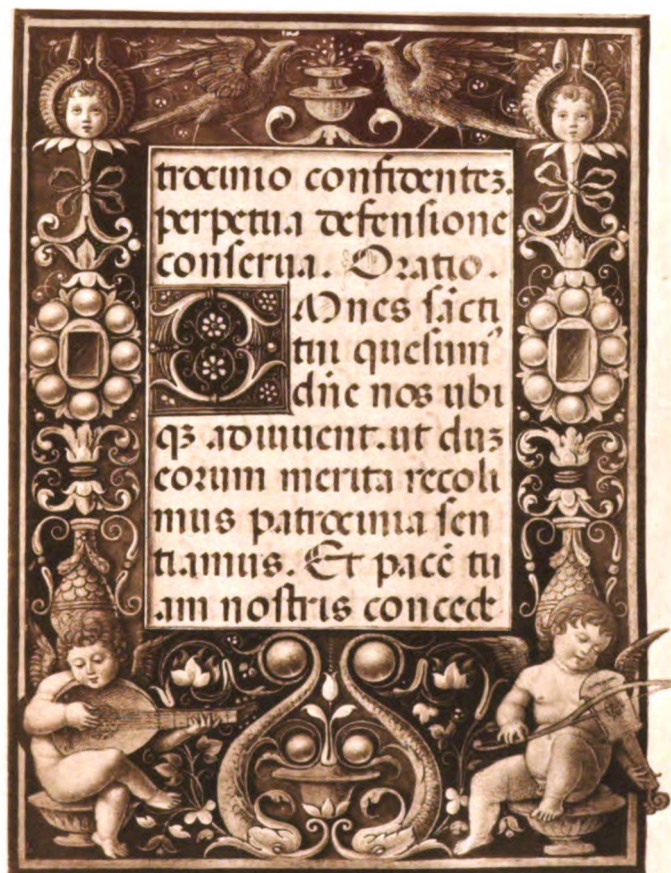 trocinio confidentez.
perpetua defensione
conserua. Oratio.
OMnes sācti
tui quesum⁹
dn̄e nos ubi
qȝ adiuuent. ut duȝ
eorum merita recoli
mus patrocinia sen
tiamus. Et pacē tu
am nostris concede